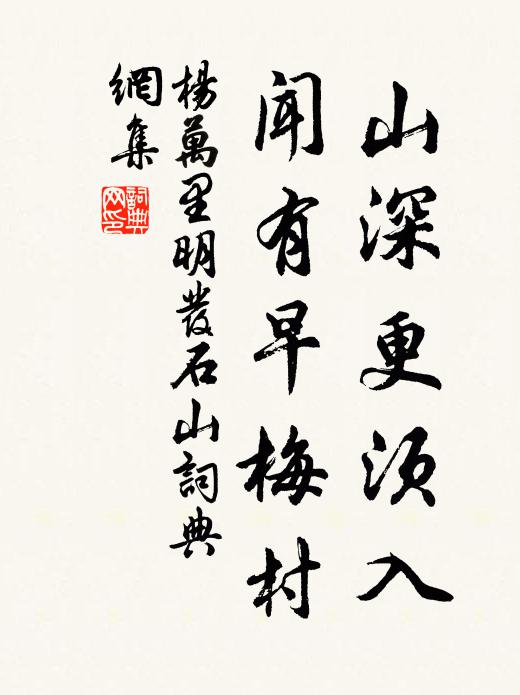 山深更須入
聞有早梅村
楊萬里明發石山詞典
網集
詞典网印